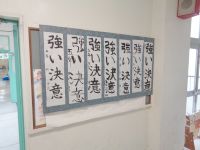 強い決意
強い決意
強い決意
強い決意
強い決意
強い決意
強い決意